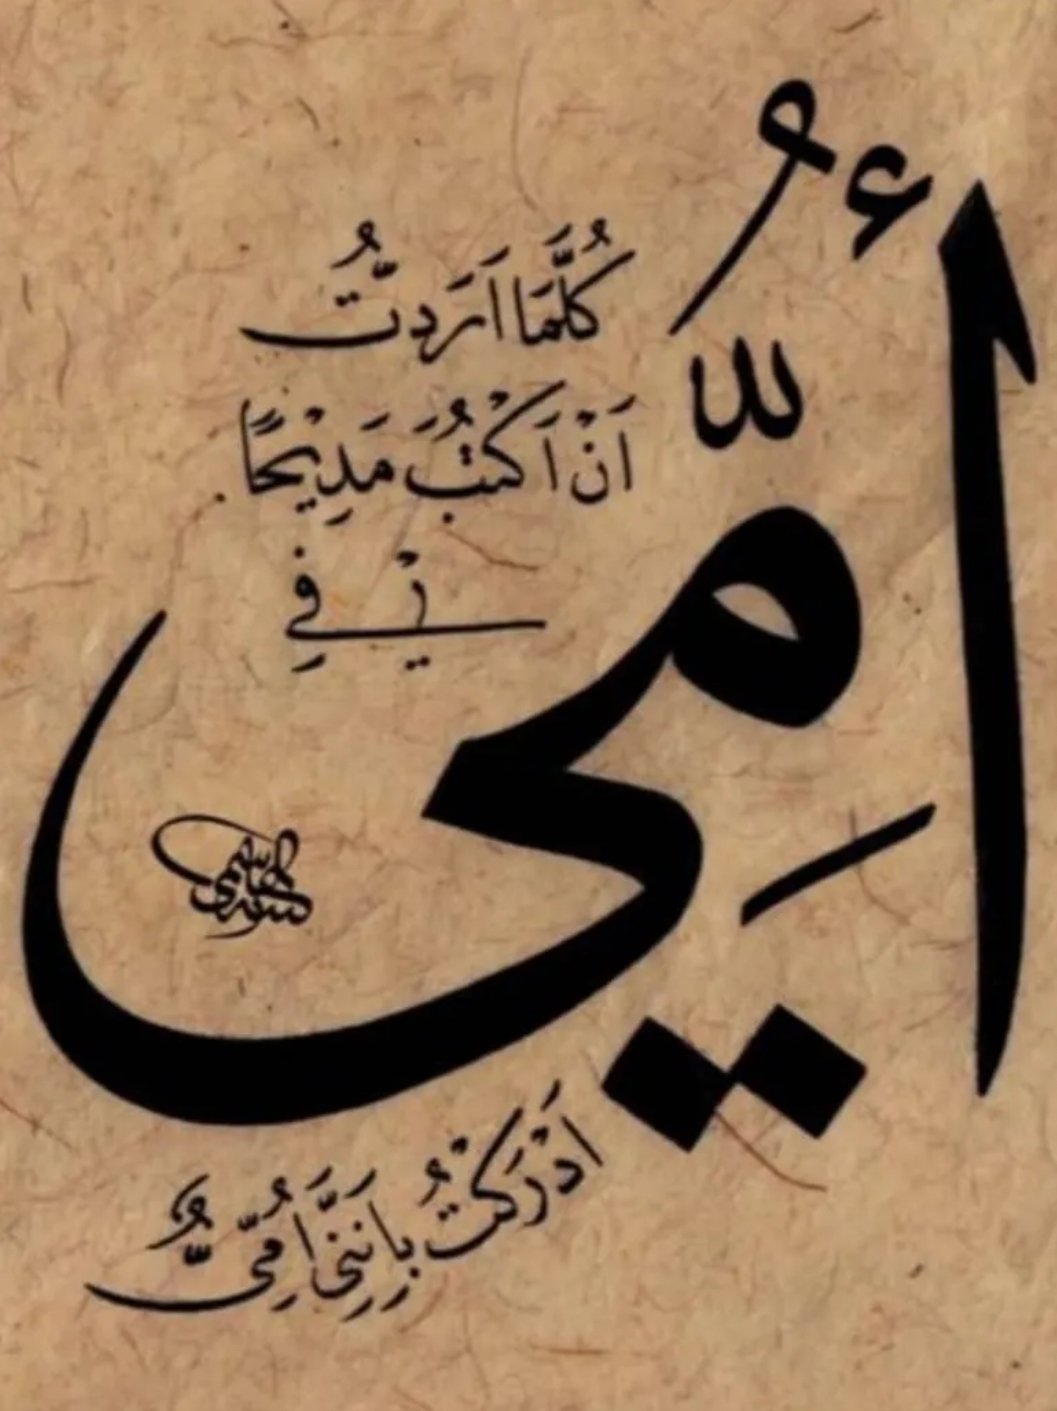 كُلَّمَا اَرَدتُّ
اَنْ اَكْتُبَ مَدِيْحًا
فِيْ
أُمِّي
اَدْرَكْتُ بِاَنَّنِي اُمِّيٌّ